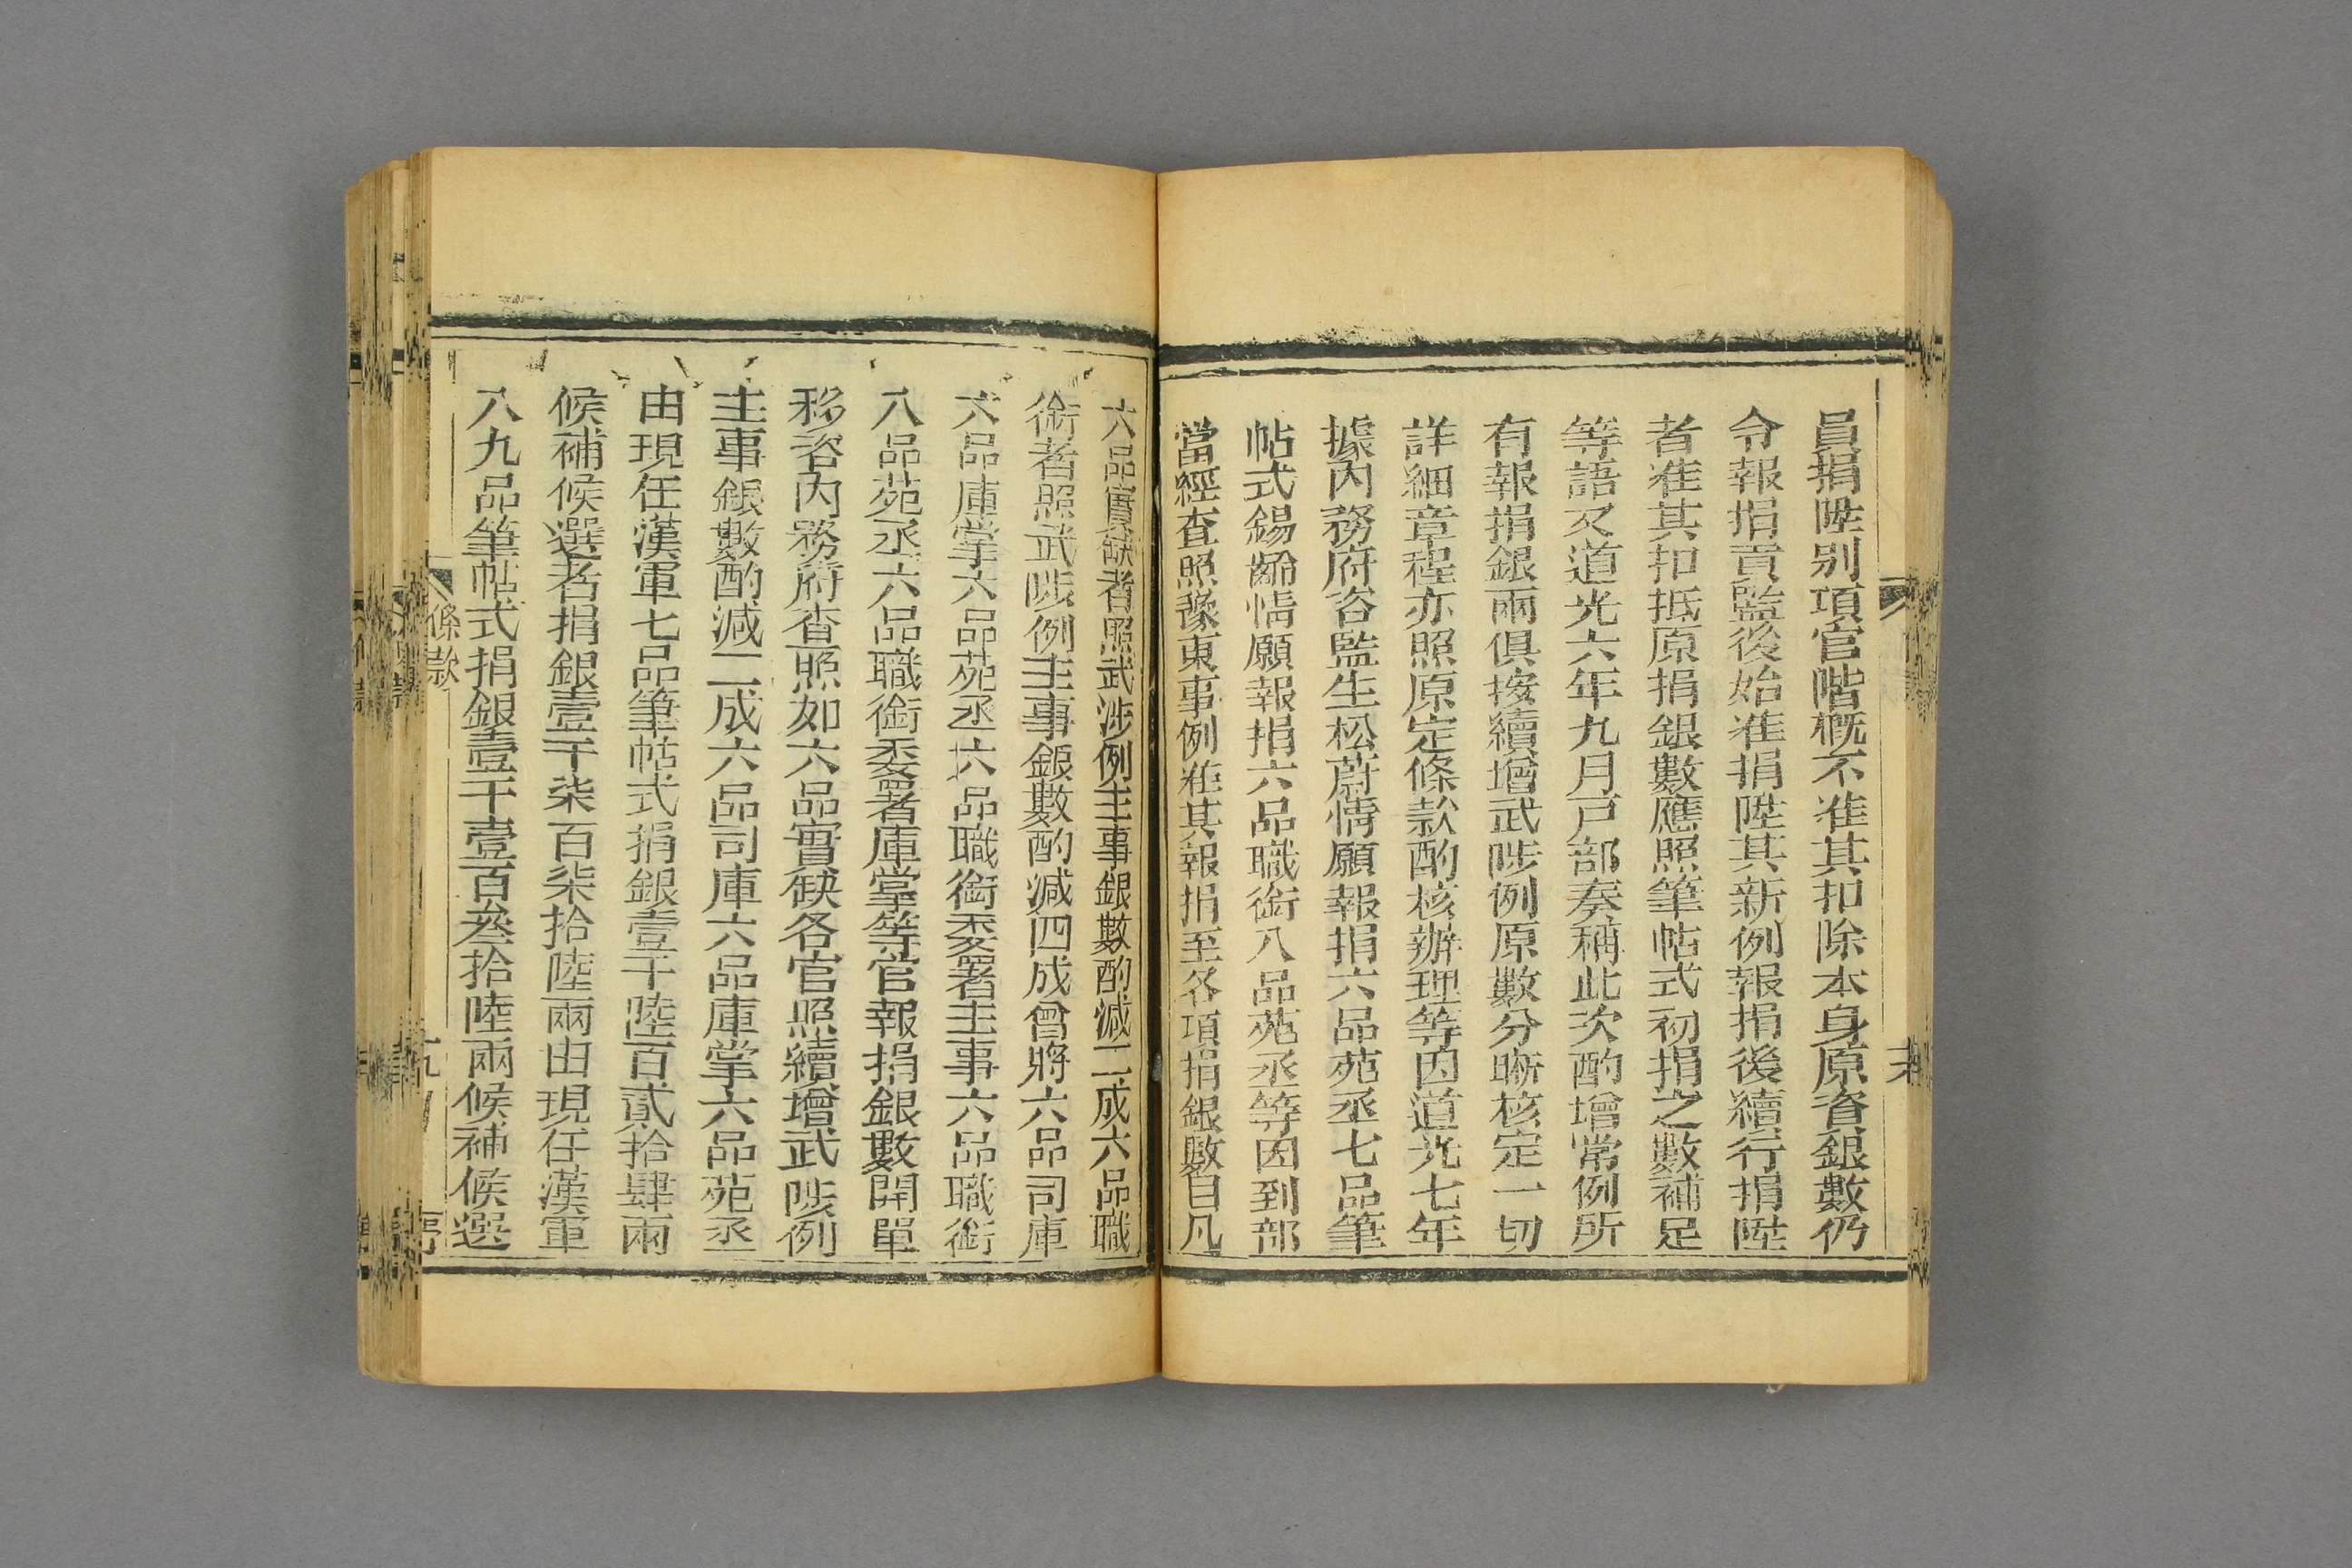 員捐陞别項官階概不准其扣除本身原資銀數仍
令報捐貢監後始准捐陞其新例報捐後續行捐陞
者准其扣抵原捐銀數應照筆帖式初捐之數補足
等語又道光六年九月戸部奏稱此次酌增常例所
有報捐銀兩俱按續增武陟例原數分晰核定一切
詳細章程亦照原定條款酌核辦理等因道光七年
據内務府咨監生松蔚情願報捐六品苑丞七品筆
帖式錫齡情願報捐六品職銜八品苑丞等因到部
當經查照豫東事例准其報捐至各項捐銀數目凡
六品實缺者照武涉例主事銀數酌減二成六品職
銜者照武陟例主事銀數酌減四成曾將六品司庫
六品庫掌六品苑丞六品職銜委署主事六品職銜
八品苑丞六品職銜委署庫掌等官報捐銀數開單
移咨内務府查照如六品實缺各官照續增武陟例
主事銀數酌減二成六品司庫六品庫掌六品苑丞
由現任漢軍七品筆帖式捐銀壹千陸百貳拾肆兩
候補候選者捐銀壹千柒百柒拾陸兩由現任漢軍
八九品筆帖式捐銀壹千壹百叁拾陸兩候補候選
條款